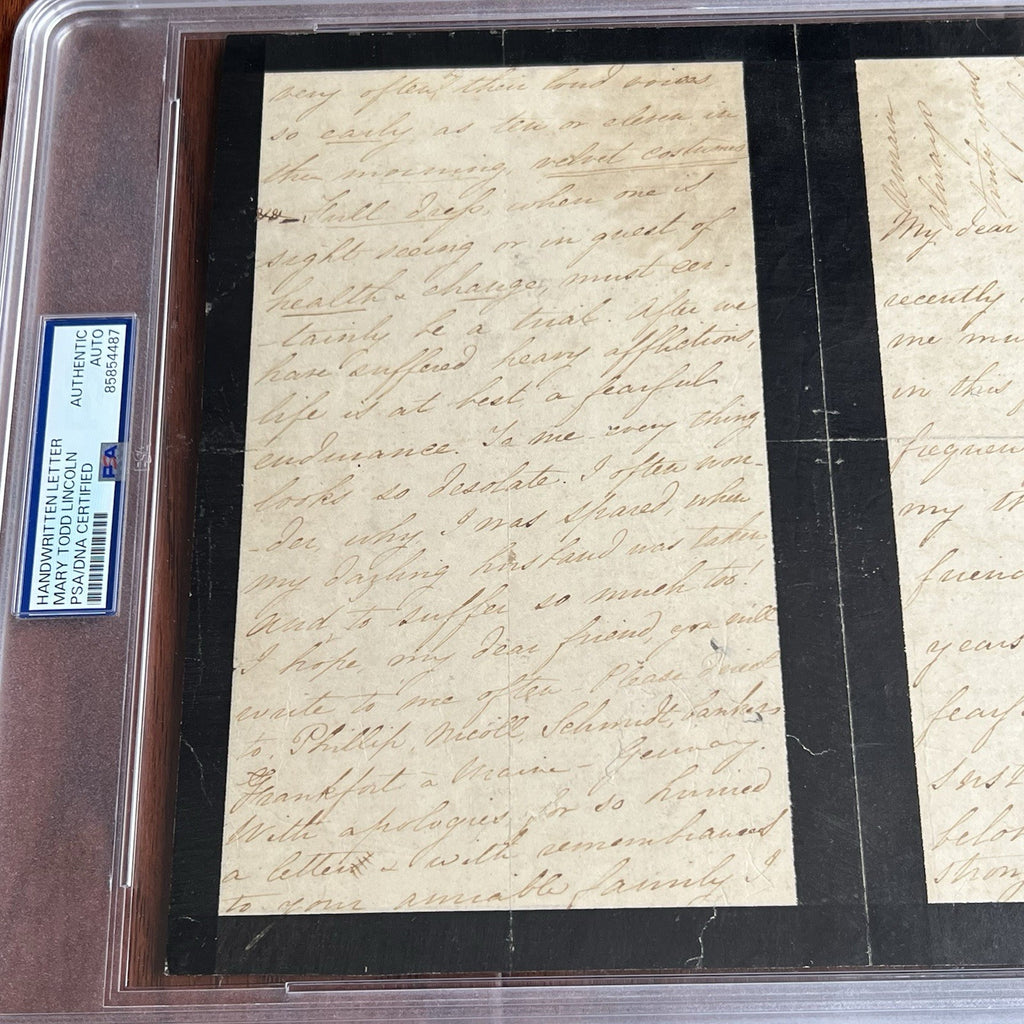 HANDWRITTEN LETTER
MARY TODD LINCOLN
PSA/DNA CERTIFIED
AUTHENTIC
AUTO
85854487
PSA
very often, their loud voices
so early as ten or eleven in
the morning, velvet costumes
full dress, when one is
sight seeing or in quest of
health & change, must cer-
-tainly be a trial. After we
have suffered heavy afflictions,
life is at best a fearful
endurance. To me every thing
looks so desolate. I often won-
-der, why I was spared, when
my darling husband was taken,
and to suffer so much too!
I hope, my dear friend, you will
write to me often - Please direct
to, Phillip, Nicoll, Schmidt, bankers
Frankfort a Maine - Germany.
With apologies, for so hurried
a letter & with remembrances
to your amiable family I
remain
always
truly yours
My dear
recently
me mu
in this
frequen
my th
friend
years
fearf
sust
belov
strong